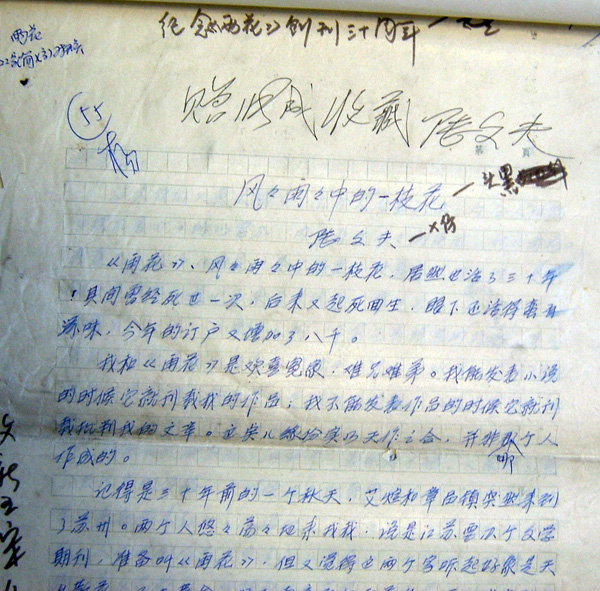 纪念《雨花》创刊三十周年
雨花
55
杨
赠 收藏 陆文夫
第 页
风风雨雨中的一枝花
陆文夫
《雨花》、风々雨々中的一枝花，居然也活了三十年
！其间曾经死过一次，后来又起死回生，眼下还活得蛮有
滋味，今年的订户又增加了八千。
我和《雨花》是欢喜冤家，难兄难弟。我能发表小说
的时候它就刊载我的作品；我不能发表作品的时候它就刊
载批判我的文章。这类儿缘份实乃天作之合，并非哪个人
作成的。
记得是三十年前的一个秋天，艾煊和章品镇突然来到
了苏州。两个人悠々荡々地来找我，说是江苏要办个文学
期刊，准备叫《雨花》，但又觉得这两个字听起好像是天